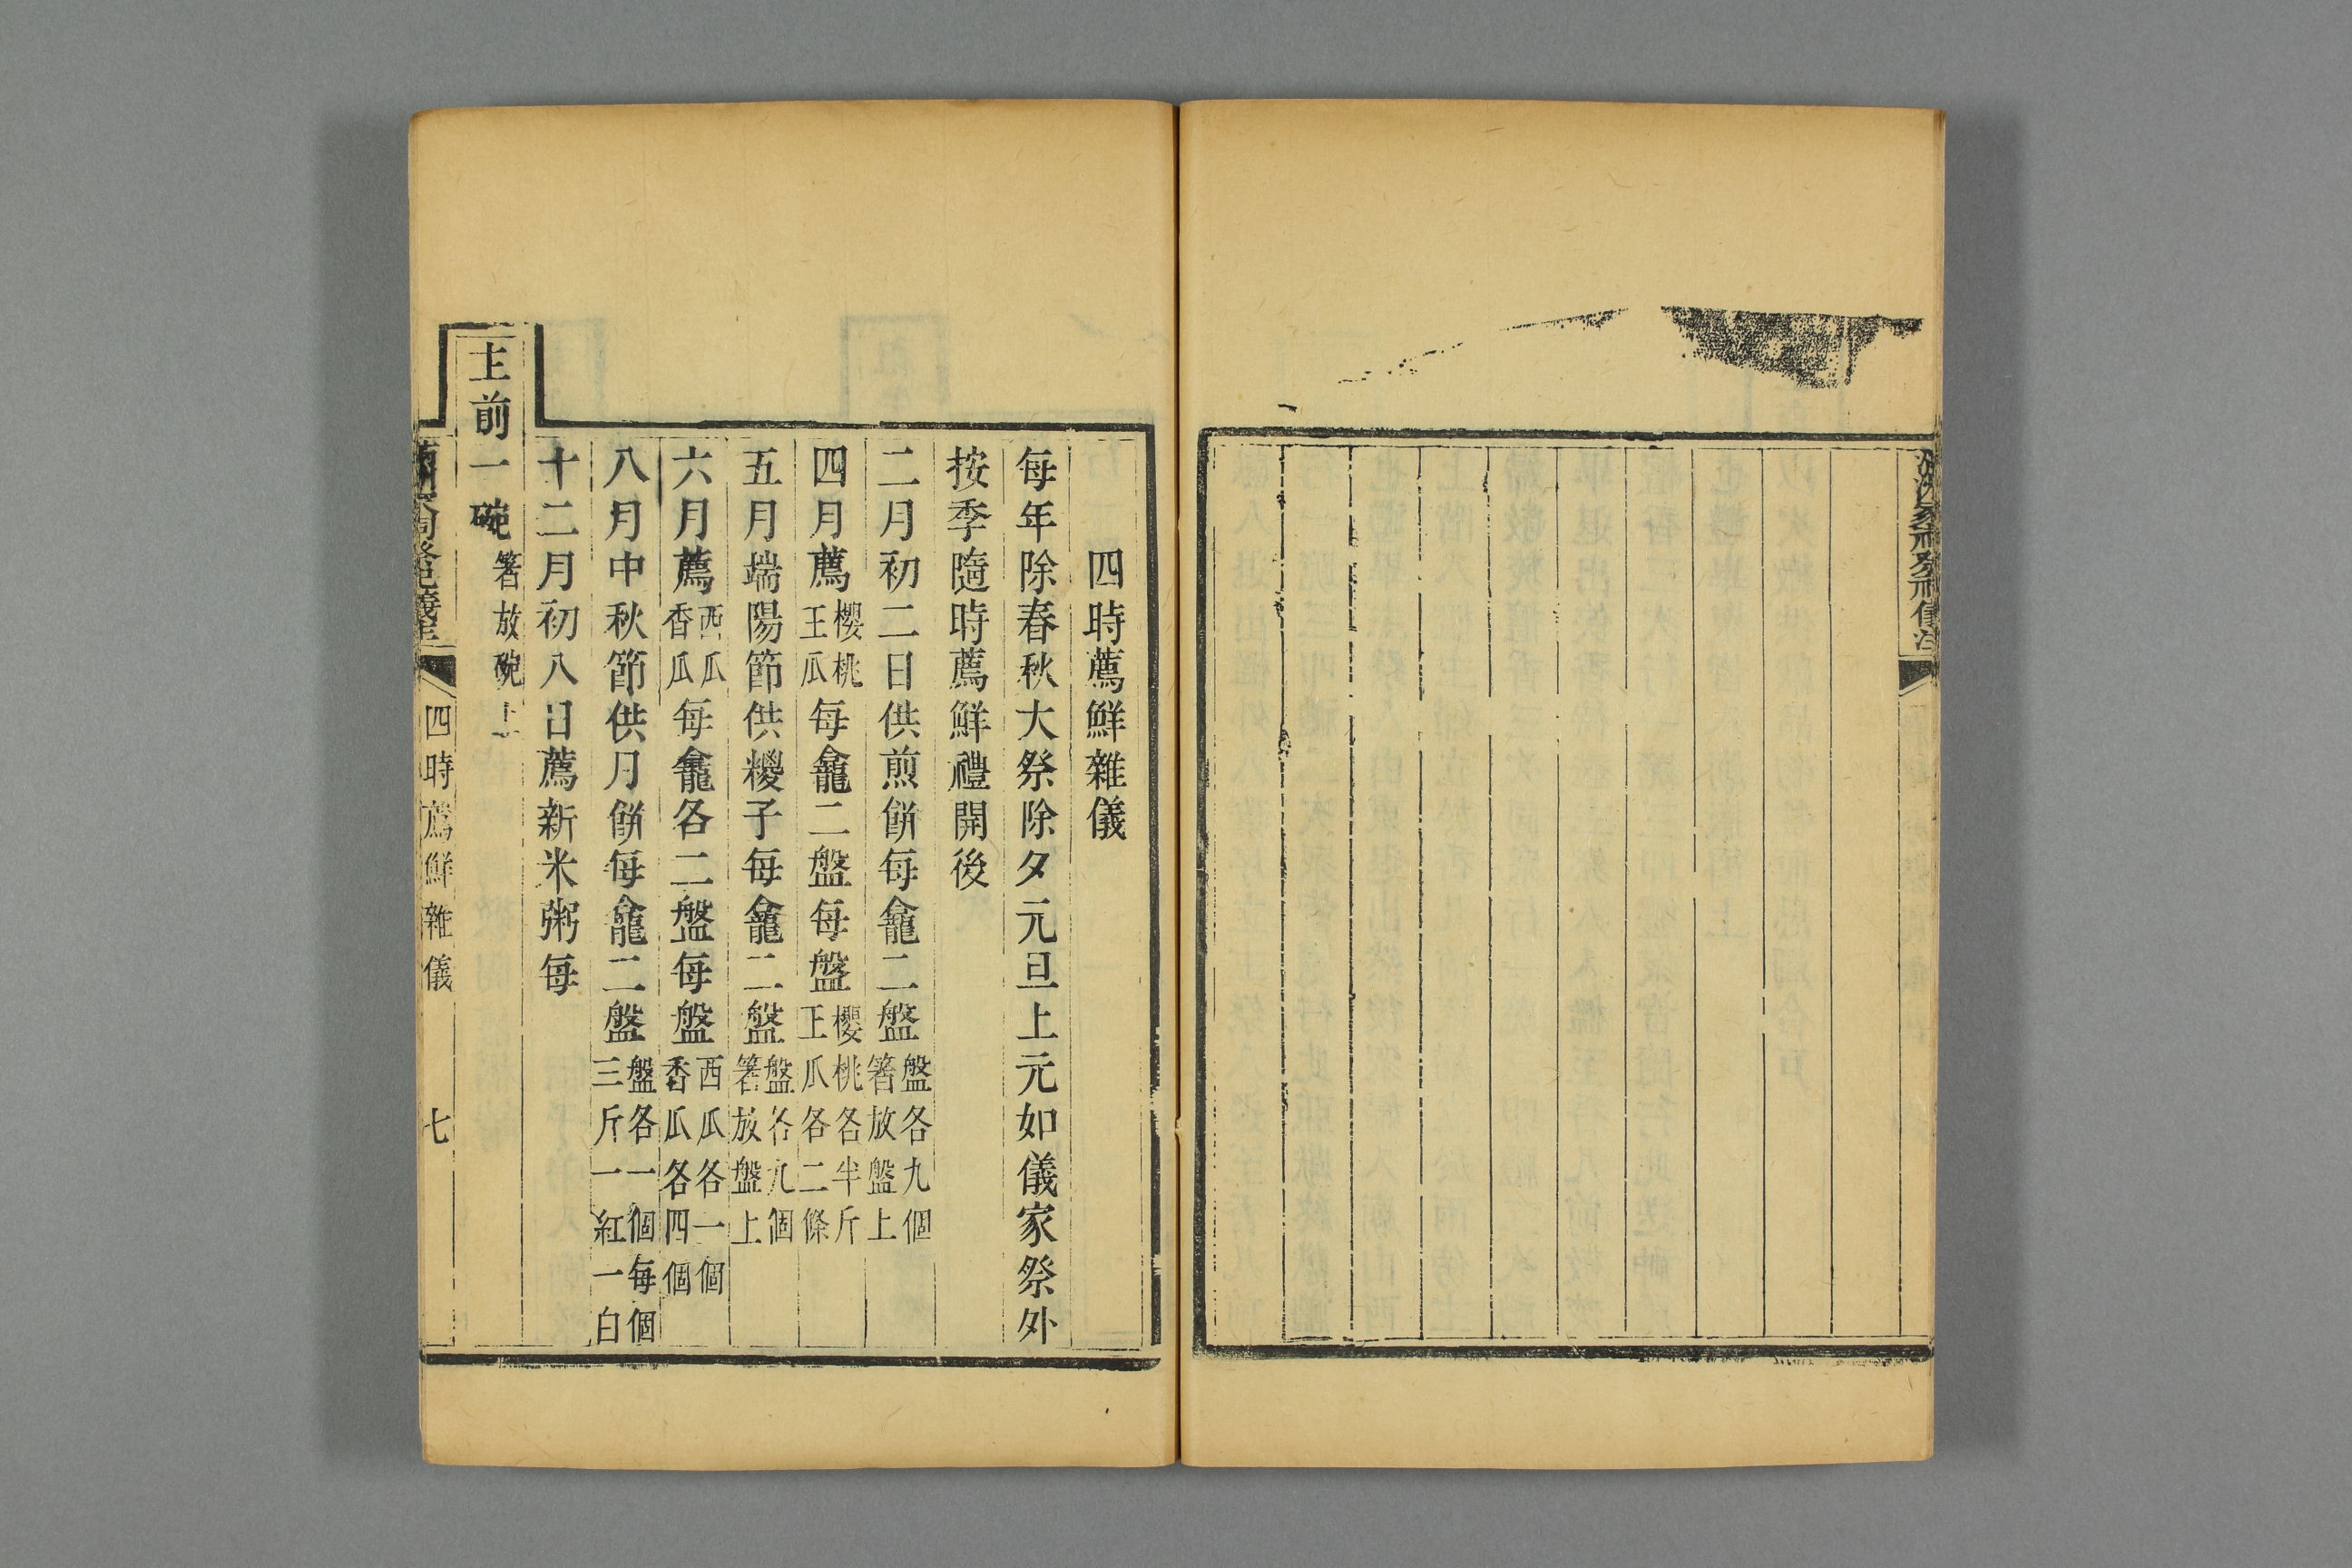 四時薦鮮雜儀
每年除春秋大祭除夕元旦上元如儀家祭外
按季隨時薦鮮禮開後
二月初二日供煎餅每龕二盤盤各九個箸放盤上
四月薦櫻桃王瓜每龕二盤每盤櫻桃各半斤王瓜各二條
五月端陽節供糉子每龕二盤盤各九個箸放盤上
六月薦西瓜香瓜每龕各二盤每盤西瓜各一個香瓜各四個
八月中秋節供月餅每龕二盤盤各一個每個三斤一紅一白
十二月初八日薦新米粥每
主前一碗箸放碗上
四時薦鮮雜儀 七